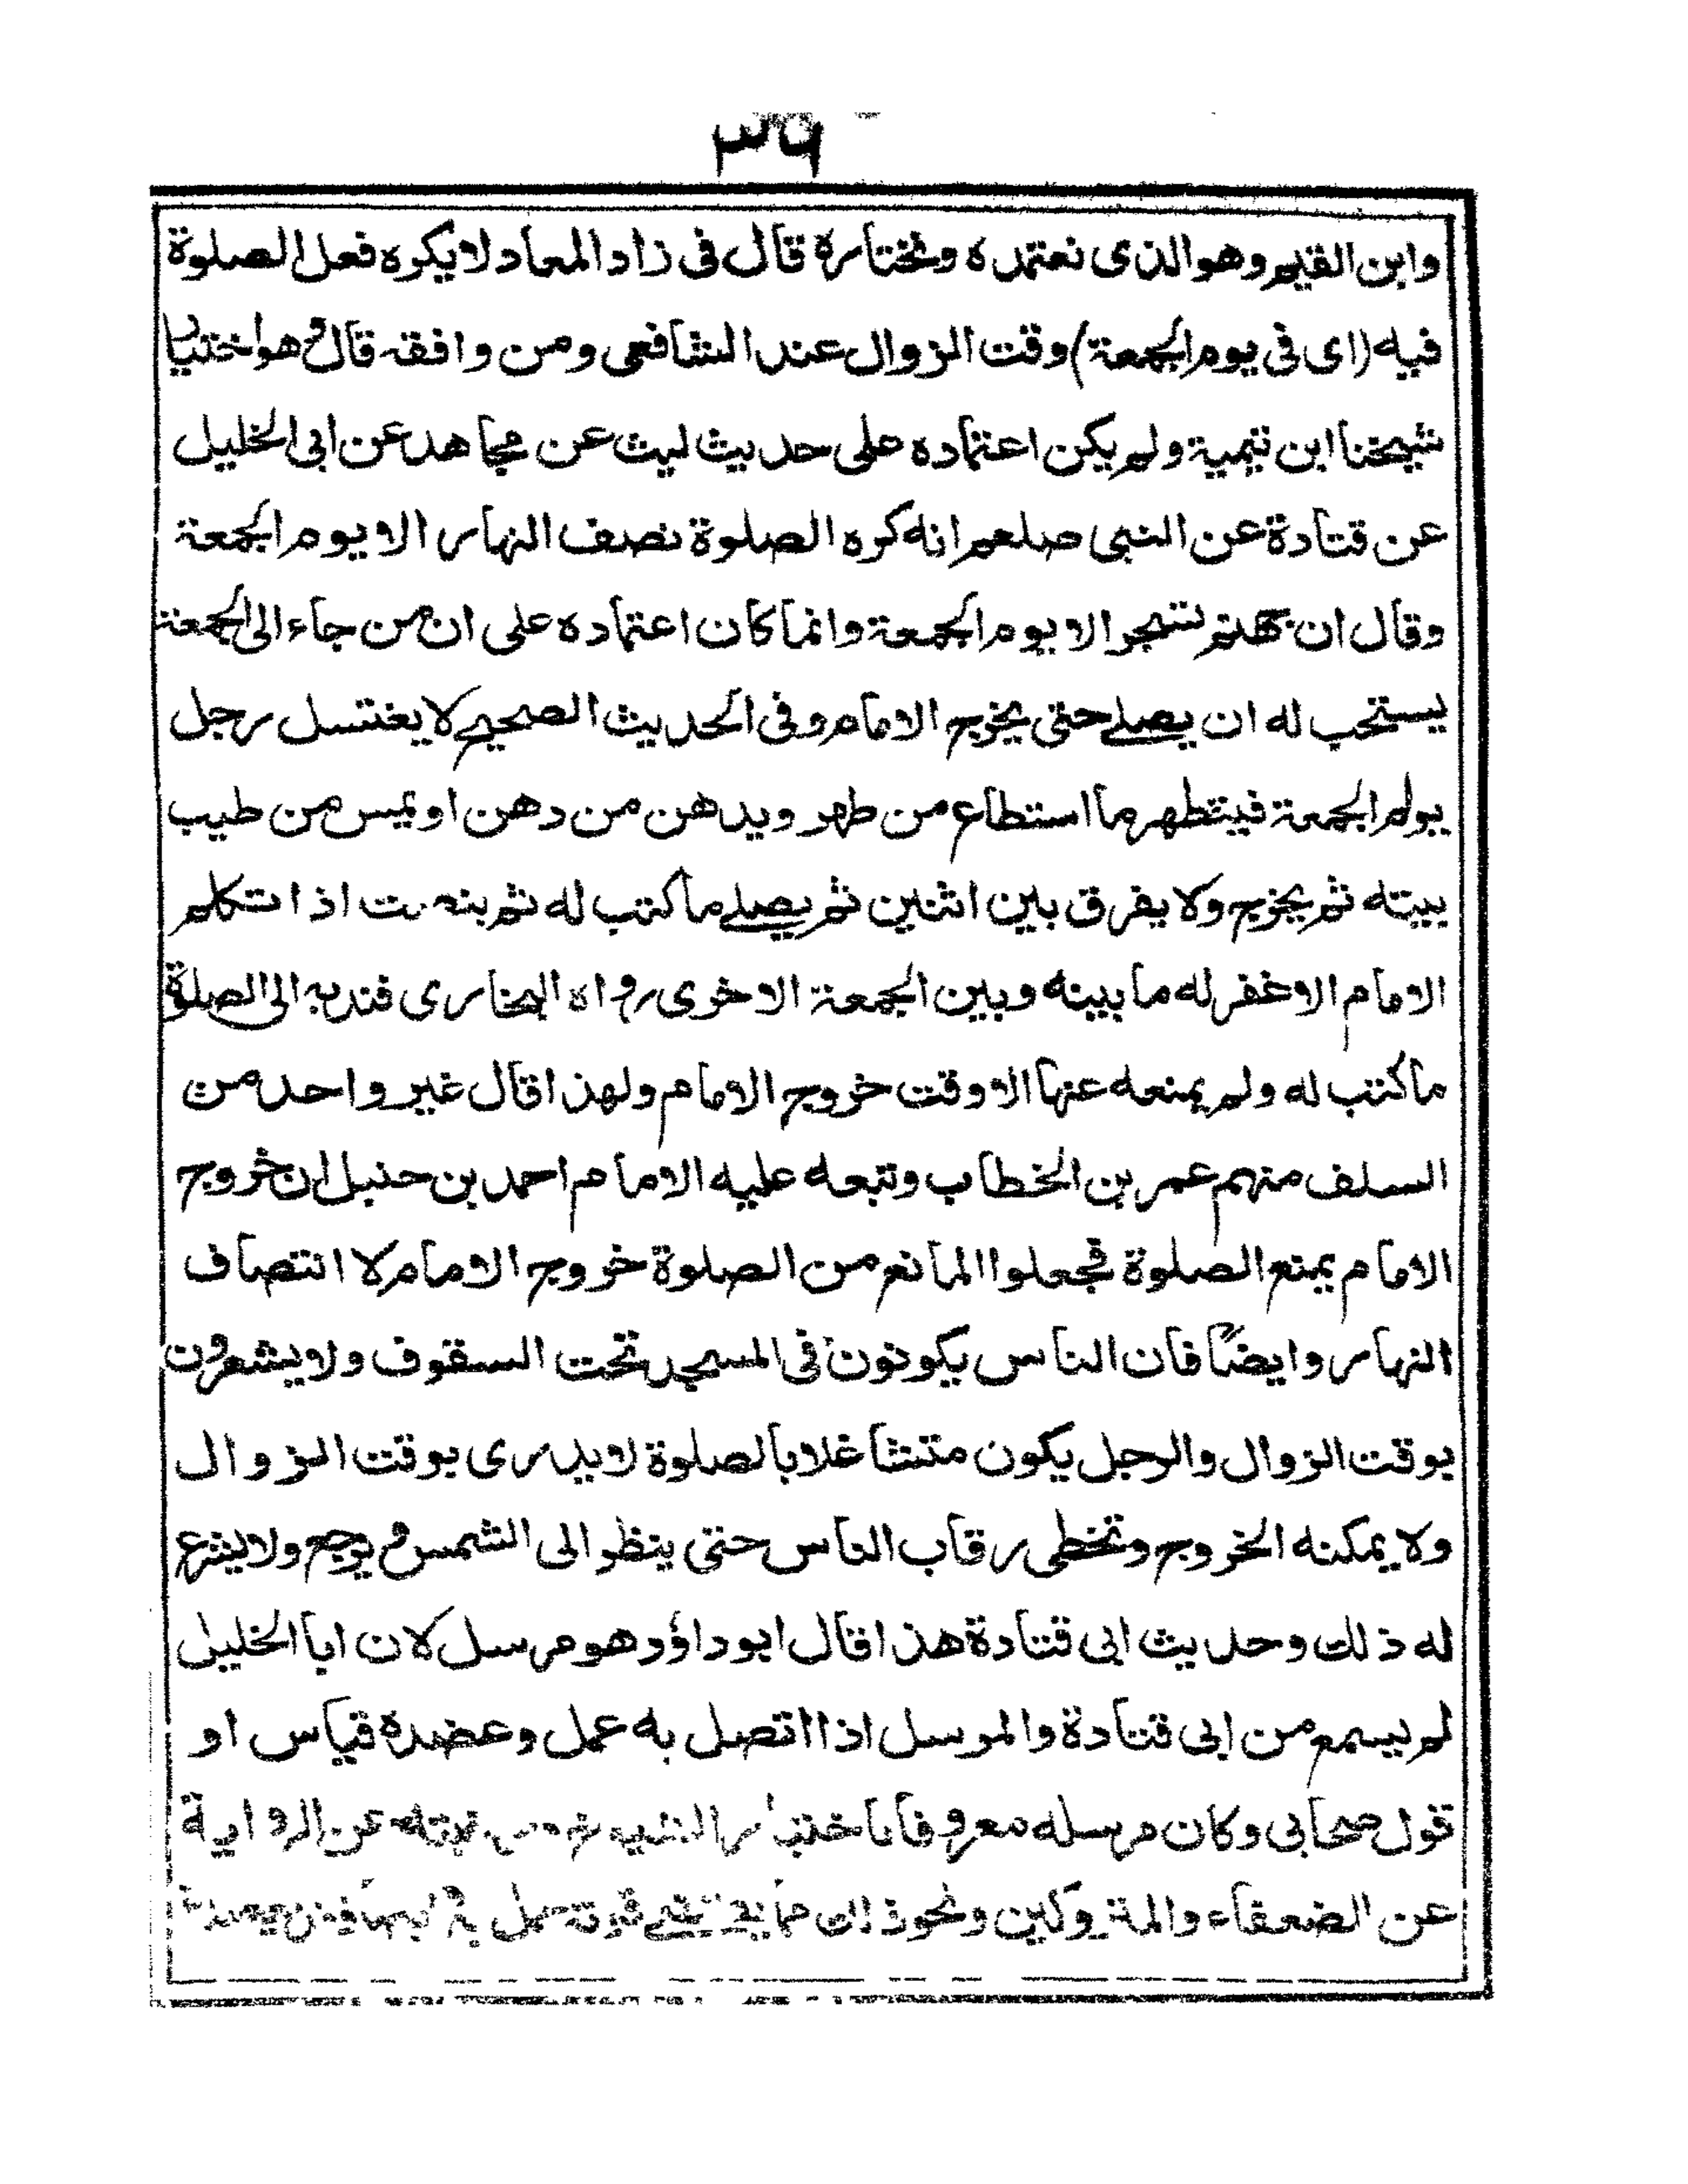 ٣٦
وابن القيم وهو الذى نعتمده ونختاره قال فى زاد المعاد لا يكره فعل الصلوة
فيه (اى فى يوم الجمعة) وقت الزوال عند الشافعى ومن وافقه قال وهو اختيار
شيخنا ابن تيمية ولم يكن اعتماده على حديث ليث عن مجاهد عن ابى الخليل
عن قتادة عن النبى صلعم انه كره الصلوة نصف النهار الا يوم الجمعة
وقال ان جهنم تسجر الا يوم الجمعة وانما كان اعتماده على ان من جاء الى الجمعة
يستحب له ان يصلے حتى يخرج الامام وفى الحديث الصحيح لا يغتسل رجل
يوم الجمعة فيتطهر ما استطاع من طهر ويدهن من دهن او يمس من طيب
بيته ثم يخرج ولا يفرق بين اثنين ثم يصلے ما كتب له ثم ينصت اذا تكلم
الامام الا غفر له ما بينه وبين الجمعة الاخرى رواه البخارى فندبه الى الصلوة
ما كتب له ولم يمنعه عنها الا وقت خروج الامام ولهذا قال غير واحد من
السلف منهم عمر بن الخطاب وتبعه عليه الامام احمد بن حنبل ان خروج
الامام يمنع الصلوة فجعلوا المانع من الصلوة خروج الامام لا انتصاف
النهار وايضًا فان الناس يكونون فى المسجد تحت السقوف ولا يشعرون
بوقت الزوال والرجل يكون متشاغلا بالصلوة لا يدرى بوقت الزوال
ولا يمكنه الخروج وتخطى رقاب الناس حتى ينظر الى الشمس ويرجع ولا يشرع
له ذلك وحديث ابى قتادة هذا قال ابو داؤد هو مرسل لان ابا الخليل
لم يسمع من ابى قتادة والمرسل اذا اتصل به عمل وعضده قياس او
قول صحابى وكان مرسله معروفا باختيار الشيوخ عن الرواية
عن الضعفاء والمتروكين ونحو ذلك مما